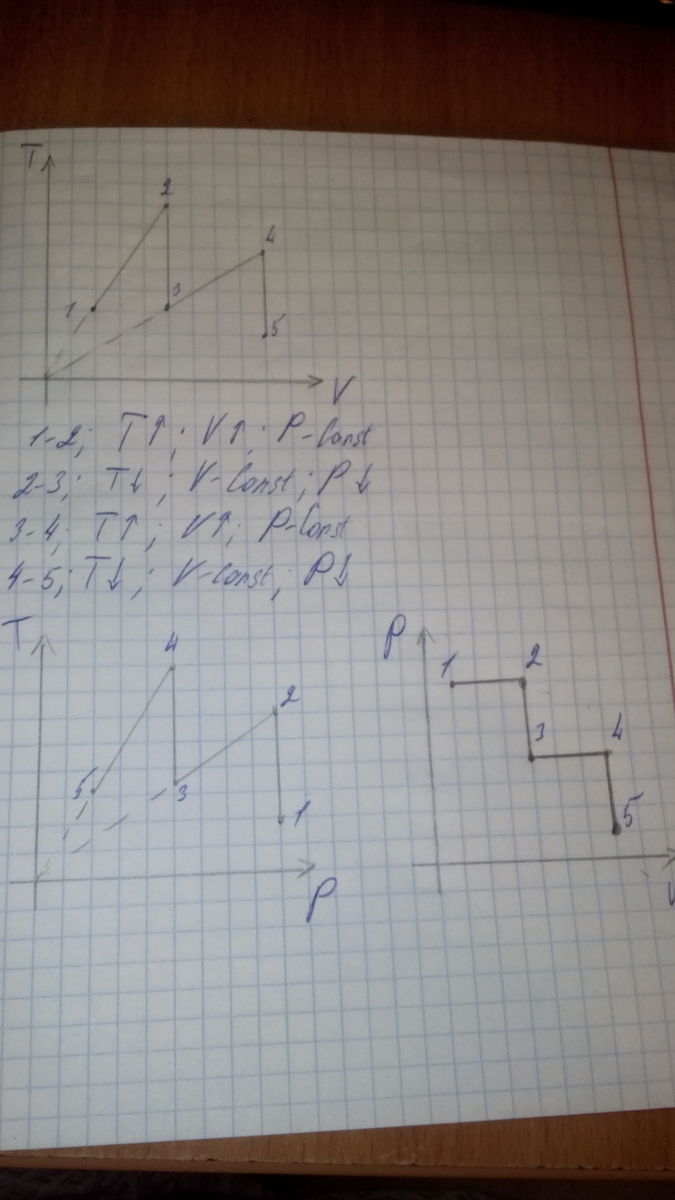 T
2
4
1
3
5
V
1-2; T↑; V↑; P-Const
2-3; T↓; V-Const; P↓
3-4; T↑; V↑; P-Const
4-5; T↓; V-Const; P↓
T
4
2
5
3
1
P
P
1
2
3
4
5
V